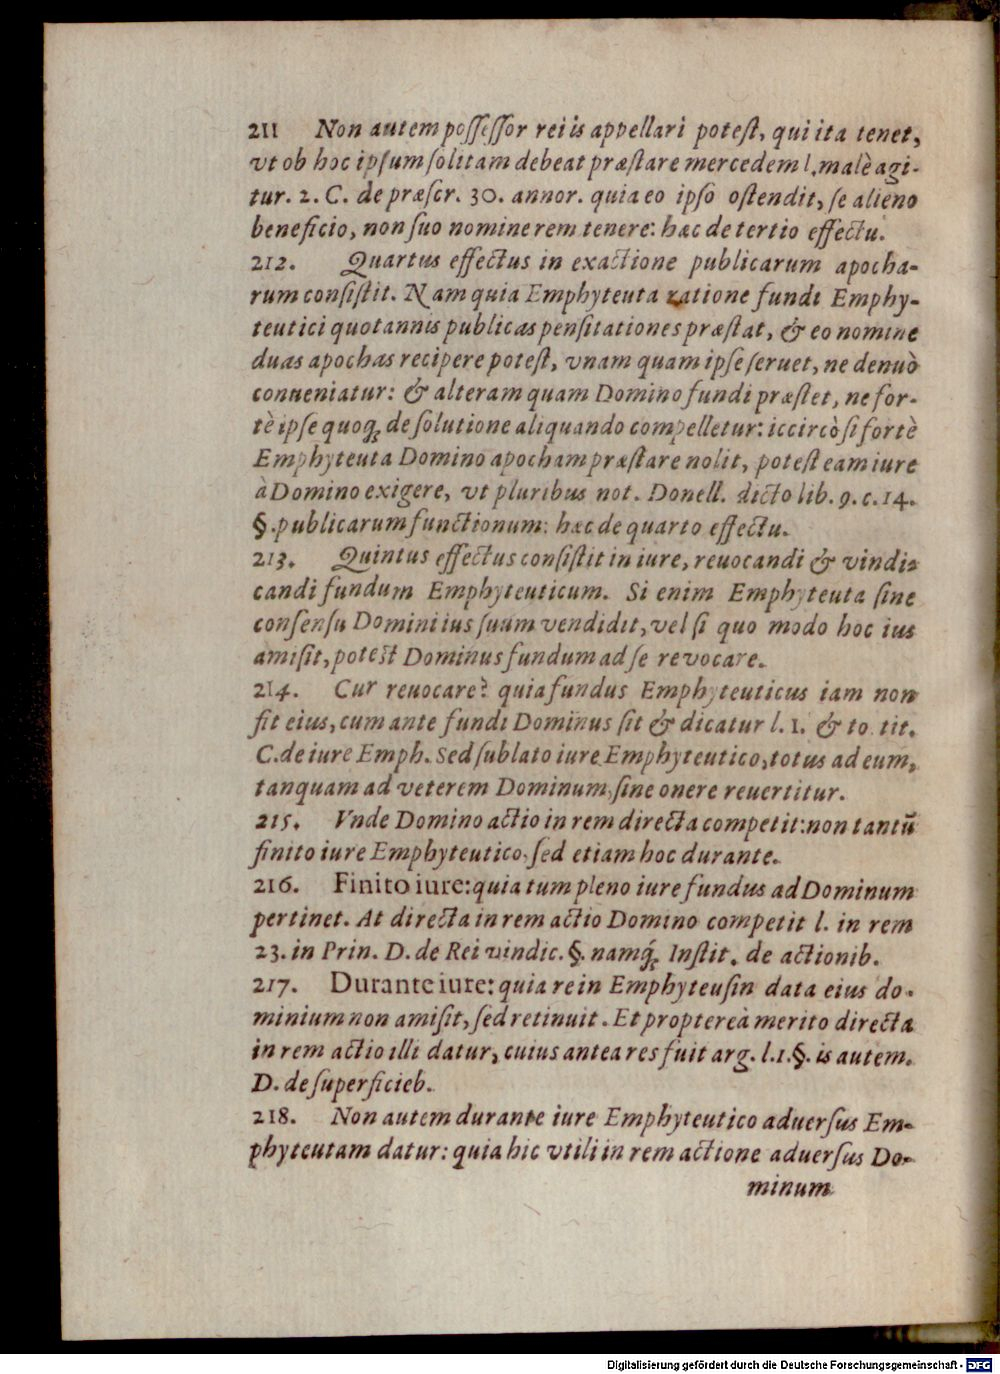 211 Non autem poſſeſſor rei is appellari poteſt, qui ita tenet,
vt ob hoc ipſum ſolitam debeat præſtare mercedem l. malè agi-
tur. 2. C. de præſcr. 30. annor. quia eo ipſo oſtendit, ſe alieno
beneficio, non ſuo nomine rem tenere: hæc de tertio effectu.
212. Quartus effectus in exactione publicarum apocha-
rum conſiſtit. Nam quia Emphyteuta ratione fundi Emphy-
teutici quotannis publicas penſitationes præſtat, & eo nomine
duas apochas recipere poteſt, vnam quam ipſe ſeruet, ne denuò
conueniatur: & alteram quam Domino fundi præſtet, ne for-
tè ipſe quoq; de ſolutione aliquando compelletur: iccircò ſi fortè
Emphyteuta Domino apocham præſtare nolit, poteſt eam iure
à Domino exigere, vt pluribus not. Donell. dicto lib. 9. c. 14.
§. publicarum functionum: hæc de quarto effectu.
213. Quintus effectus conſiſtit in iure, reuocandi & vindi-
candi fundum Emphyteuticum. Si enim Emphyteuta ſine
conſenſu Domini ius ſuum vendidit, vel ſi quo modo hoc ius
amiſit, poteſt Dominus fundum ad ſe revocare.
214. Cur reuocare? quia fundus Emphyteuticus iam non
fit eius, cum ante fundi Dominus ſit & dicatur l. 1. & to. tit.
C. de iure Emph. Sed ſublato iure Emphyteutico, totus ad eum,
tanquam ad veterem Dominum, ſine onere reuertitur.
215. Vnde Domino actio in rem directa competit: non tantũ
finito iure Emphyteutico, ſed etiam hoc durante.
216. Finito iure: quia tum pleno iure fundus ad Dominum
pertinet. At directa in rem actio Domino competit l. in rem
23. in Prin. D. de Rei vindic. §. namq́; Inſtit. de actionib.
217. Durante iure: quia rei in Emphyteuſin data eius do-
minium non amiſit, ſed retinuit. Et propterea merito directa
in rem actio illi datur, cuius antea res fuit arg. l. 1. §. is autem.
D. de ſuperficieb.
218. Non autem durante iure Emphyteutico aduerſus Em-
phyteutam datur: quia hic vtili in rem actione aduerſus Do-
minum
Digitalisierung gefördert durch die Deutsche Forschungsgemeinschaft - DFG